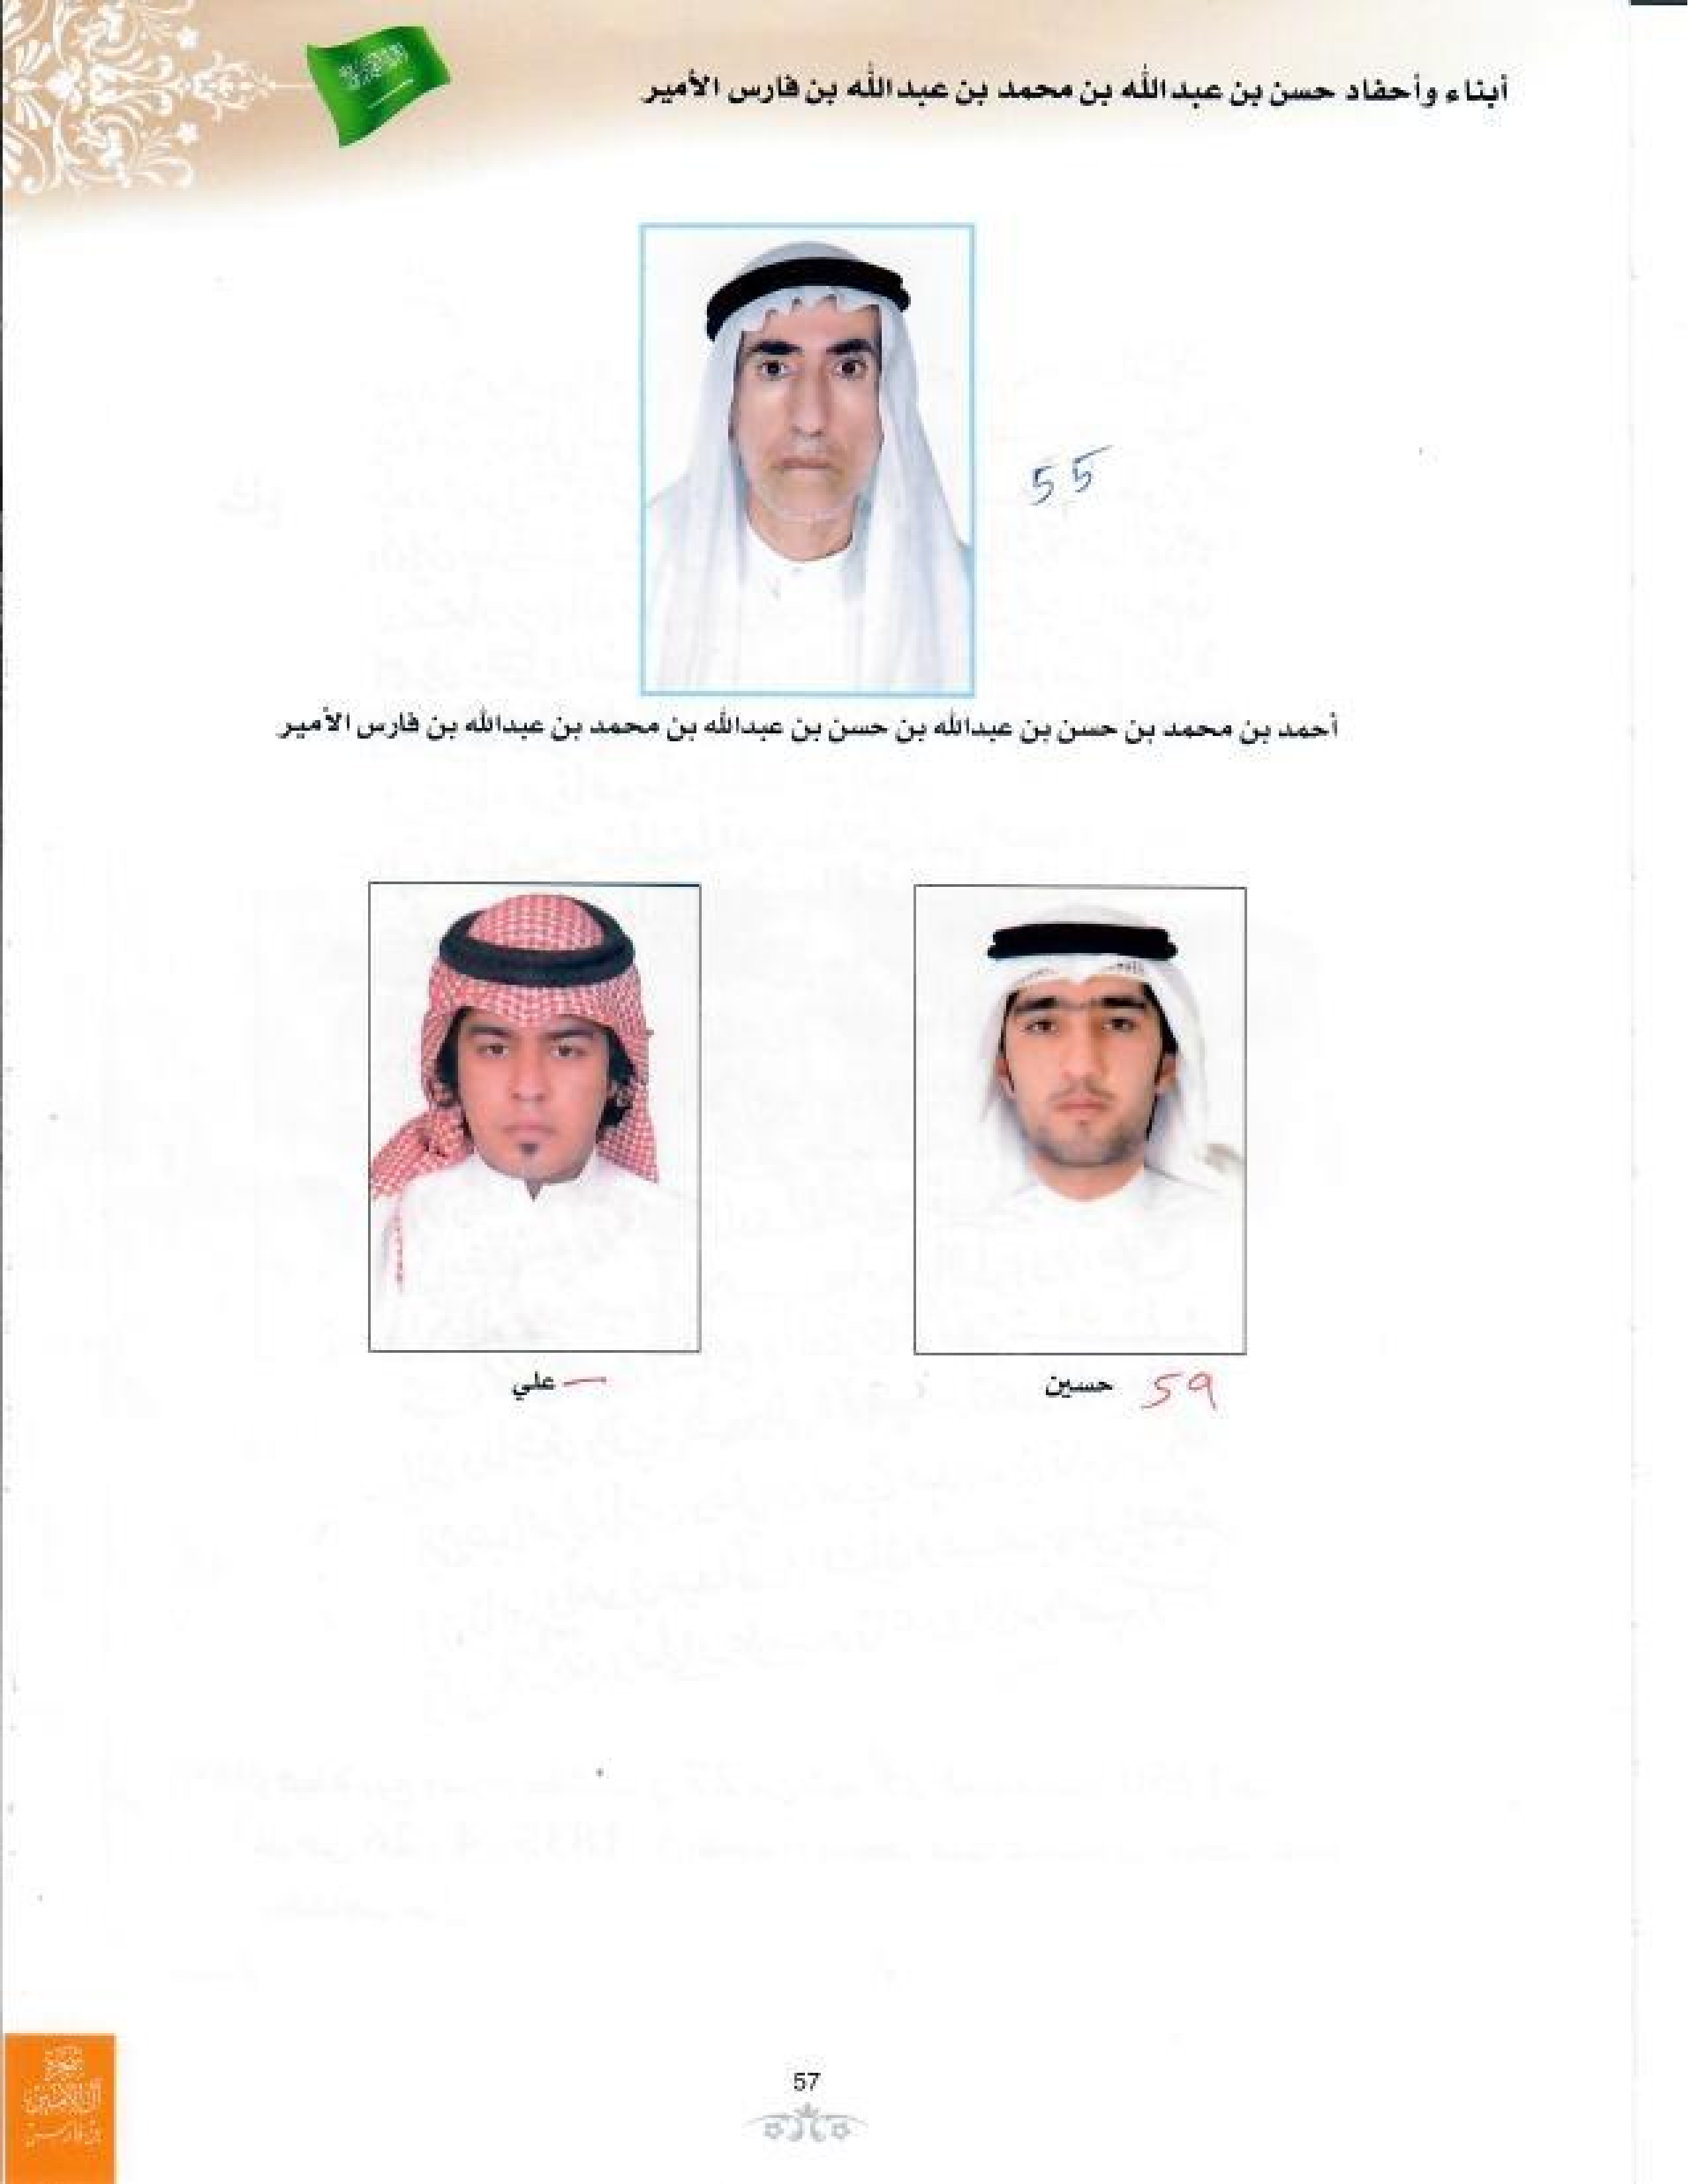 أبناء وأحفاد حسن بن عبدالله بن محمد بن عبدالله بن فارس الأمير
55
أحمد بن محمد بن حسن بن عبدالله بن حسن بن عبدالله بن محمد بن عبدالله بن فارس الأمير
59 حسين
علي
57